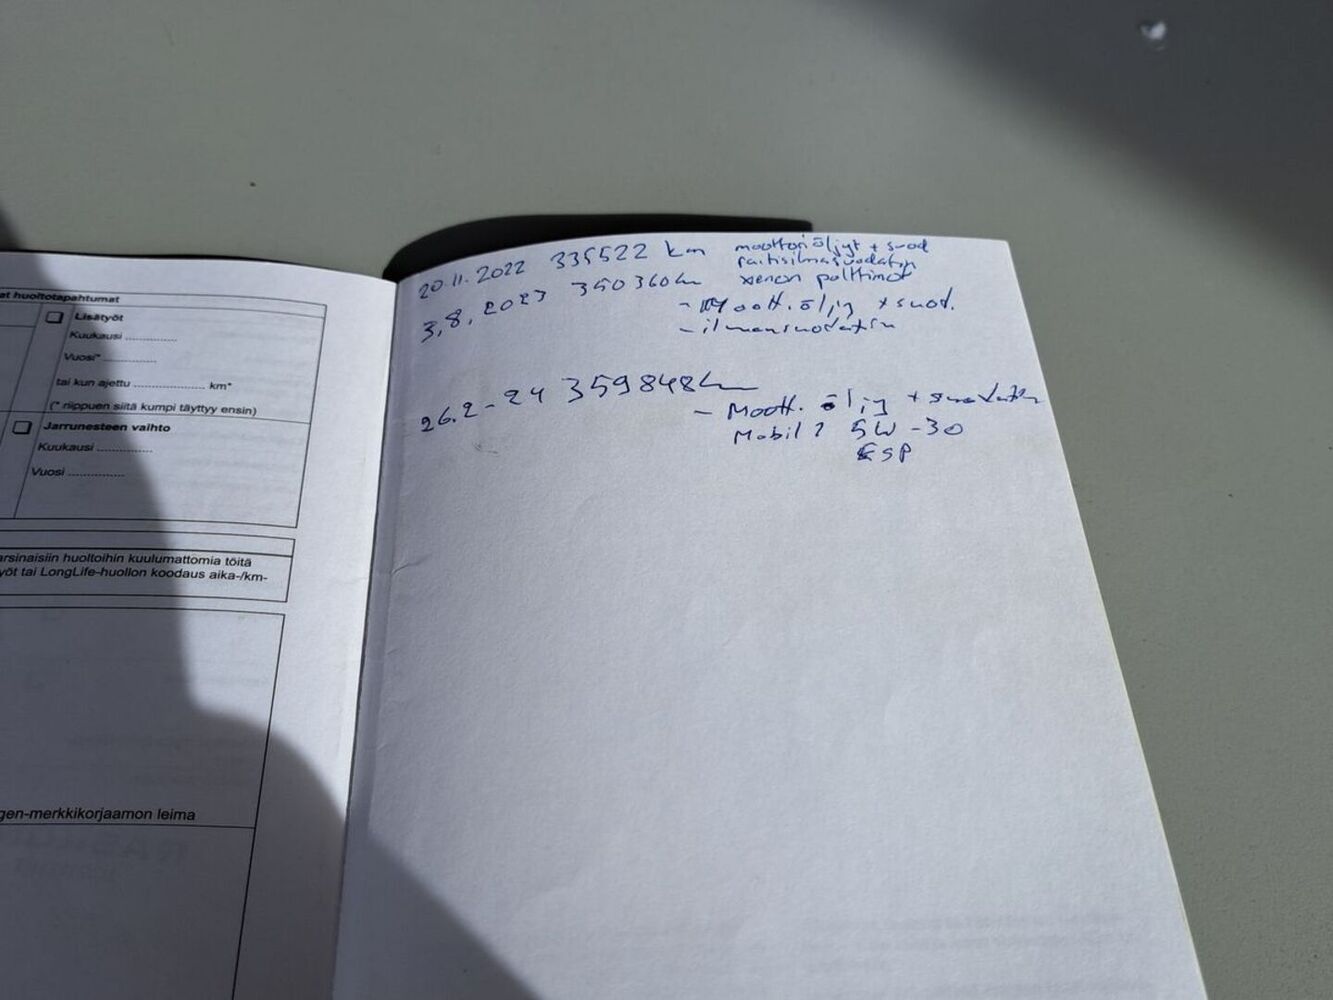 at huoltotapahtumat
Lisätyöt
Kuukausi ............
Vuosi* ............
tai kun ajettu ................ km*
(* riippuen siitä kumpi täyttyy ensin)
Jarrunesteen vaihto
Kuukausi ............
Vuosi ............
arsinaisiin huoltoihin kuulumattomia töitä
yöt tai LongLife-huollon koodaus aika-/km-
gen-merkkikorjaamon leima
20.11.2022 335522 km moottoriöljyt + suod
raitisilmasuodatin
xenon polttimot
3,8,2023 350360km
- Moott. öljy + suod.
- ilmansuodatin
26.2-24 359848km
- Moott. öljy + suodatin
Mobil 5W-30
ESP